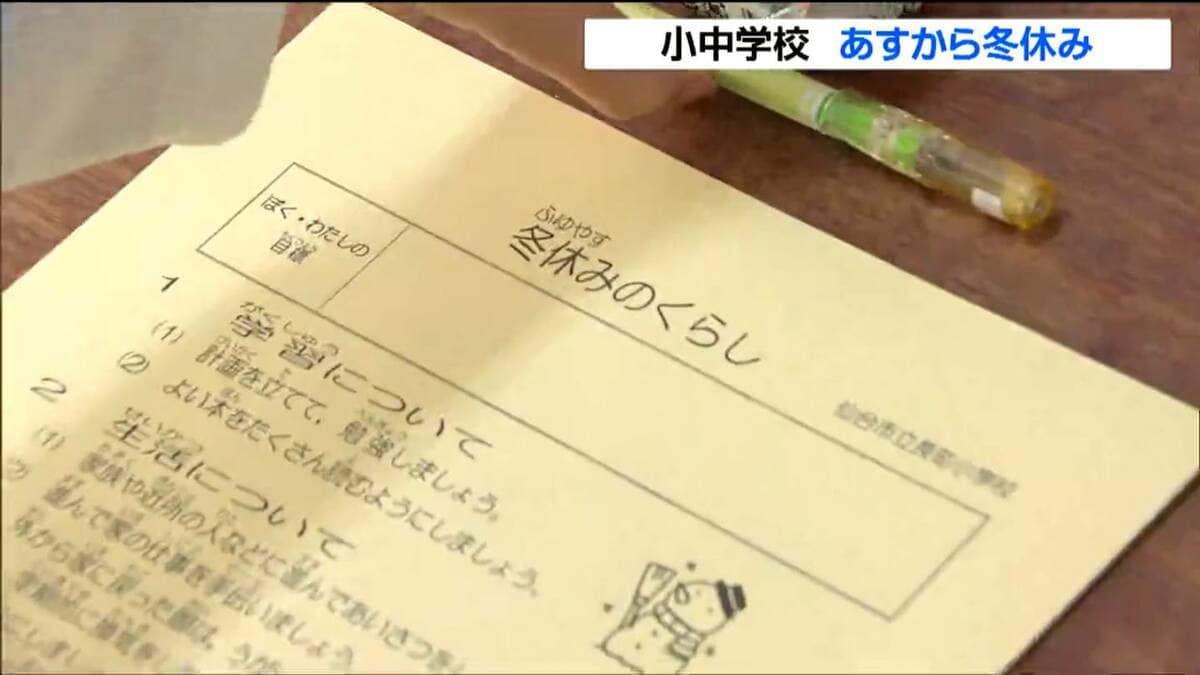 小中学校 あすから冬休み
ふゆやす
冬休みのくらし
仙台市立長町小学校
ぼく・わたしの
目標
1 学習について
がくしゅう
(1) 計画を立てて、勉強しましょう。
(2) よい本をたくさん読むようにしましょう。
2 生活について
せいかつ
(1) 家族や近所の人などに進んであいさつをし
(2) 進んで家の仕事を手伝いましょう。
外から家に戻った際は、うがい